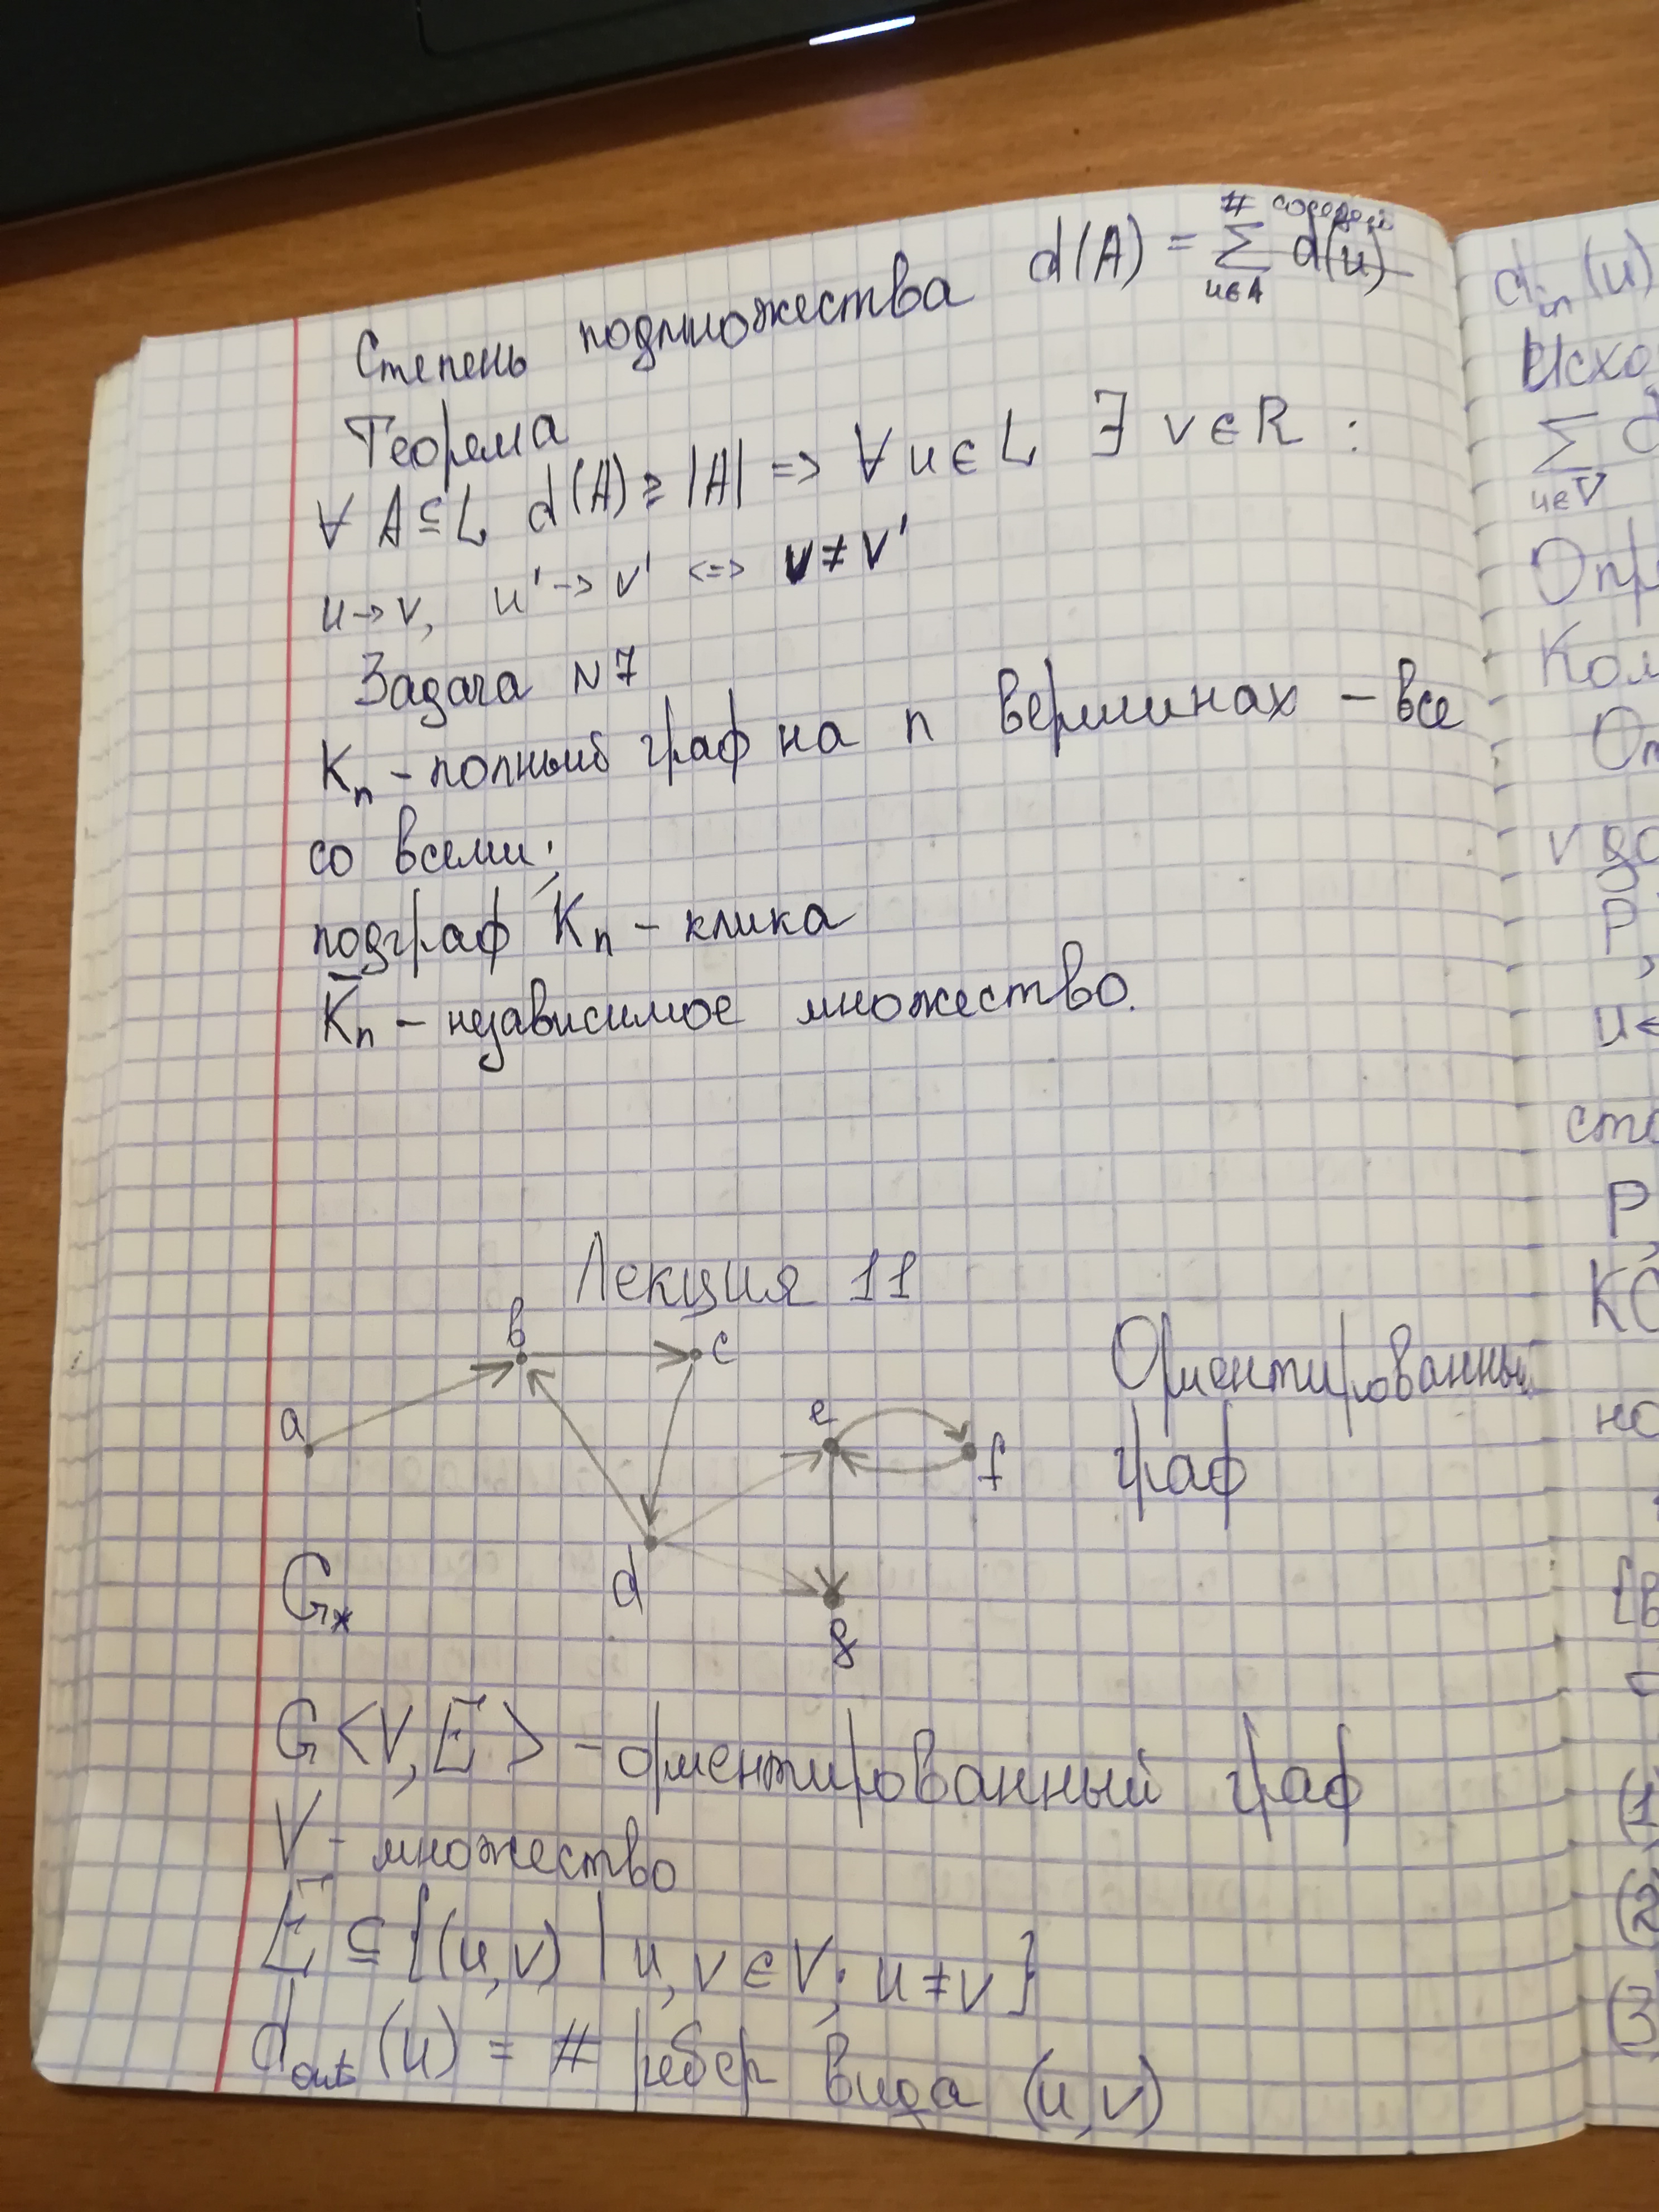 # соседей
Степень подмножества d(A) = Σ d(u)
u∈A
Теорема
∀ A⊆L d(A) ≥ |A| => ∀ u∈L ∃ v∈R :
u→v, u'→v' <=> v≠v'
Задача N7
Kₙ – полный граф на n вершинах – все
со всеми;
подграф Kₙ – клика
K̅ₙ – независимое множество.
Лекция 11
b c
a e f
Ориентированный
граф
d
G* g
G<V, E⃗> – ориентированный граф
V – множество
E⃗ ⊆ {(u,v) | u,v∈V; u≠v}
d_out (u) = # рёбер вида (u,v)
d_in (u)
Σ
u∈V
P,
u
P,
(1
(2
(3